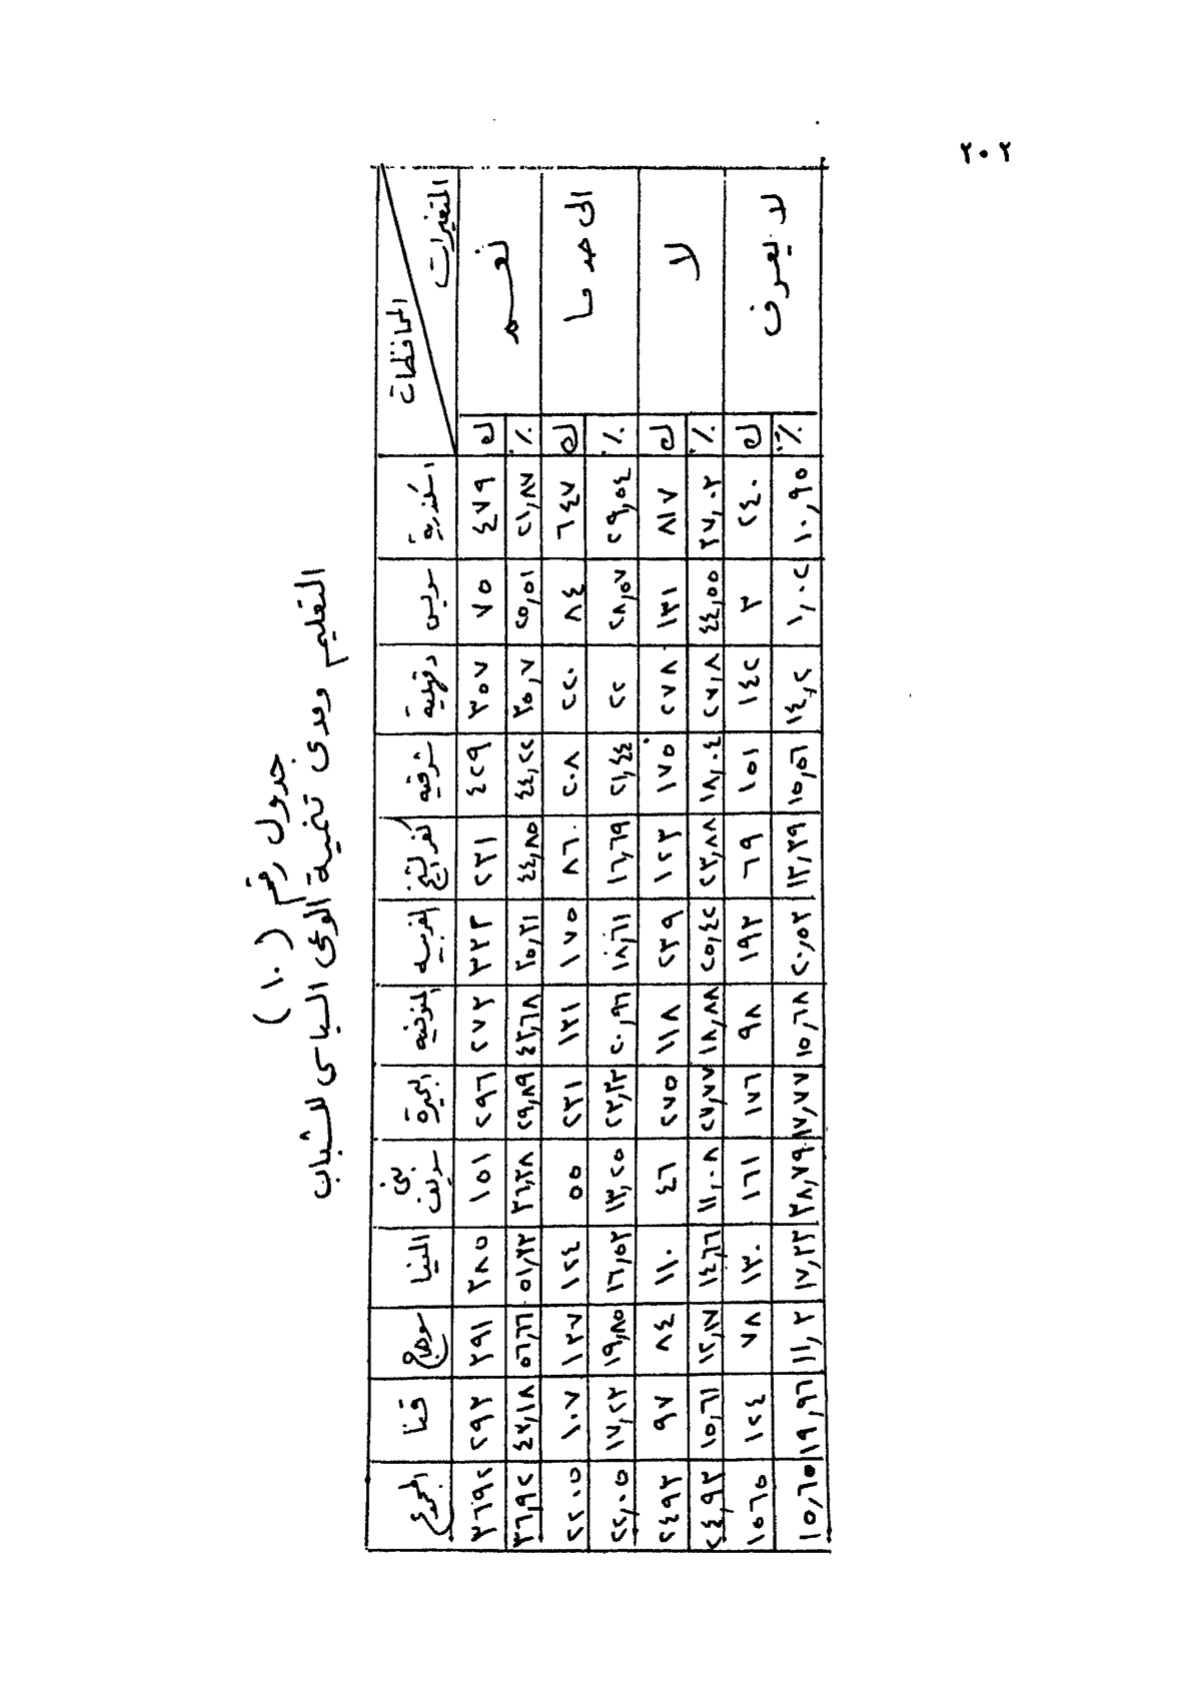 ٢٠٢
جدول رقم (١٠)
التعليم ومدى تنمية الوعى السياسى للشباب
المتغيرات المحافظات اسكندرية سويس دقهلية شرقيه كفر الشيخ الغربيه المنوفيه البحيرة بنى سويف المنيا سوهاج قنا المجموع
نعم ك ٤٧٩ ٧٥ ٣٥٧ ٤٢٩ ٢٣١ ٣٣٢ ٢٧٣ ٢٩٦ ١٥١ ٣٨٥ ٣٩١ ٢٩٣ ٣٦٩٢
٪ ٢١,٨٧ ٢٥,٥١ ٣٥,٧ ٤٤,٢٢ ٤٤,٨٥ ٣٥,٣١ ٤٣,٦٨ ٢٩,٨٩ ٣٦,٣٨ ٥١,٣٣ ٥٦,٦٦ ٤٧,١٨ ٣٦,٩٢
الى حد ما ك ٦٤٧ ٨٤ ٢٢٠ ٢٠٨ ٨٦ ١٧٥ ١٣١ ٢٣١ ٥٥ ١٢٤ ١٣٧ ١٠٧ ٢٢٠٥
٪ ٢٩,٥٤ ٢٨,٥٧ ٢٢ ٢١,٤٤ ١٦,٦٩ ١٨,٦١ ٢٠,٩٦ ٢٣,٣٣ ١٣,٢٥ ١٦,٥٣ ١٩,٨٥ ١٧,٢٣ ٢٢,٠٥
لا ك ٨١٧ ١٣١ ٢٧٨ ١٧٥ ١٢٣ ٢٣٩ ١١٨ ٢٧٥ ٤٦ ١١٠ ٨٤ ٩٧ ٢٤٩٣
٪ ٣٧,٠٣ ٤٤,٥٥ ٢٧,٨ ١٨,٠٤ ٢٣,٨٨ ٢٥,٤٢ ١٨,٨٨ ٢٧,٧٧ ١١,٠٨ ١٤,٦٦ ١٢,١٧ ١٥,٦١ ٢٤,٩٣
لا يعرف ك ٢٤٠ ٣ ١٤٢ ١٥١ ٦٩ ١٩٣ ٩٨ ١٧٦ ١٦١ ١٣٠ ٧٨ ١٢٤ ١٥٦٥
٪ ١٠,٩٥ ١,٠٢ ١٤,٢ ١٥,٥٦ ١٣,٣٩ ٢٠,٥٣ ١٥,٦٨ ١٧,٧٧ ٣٨,٧٩ ١٧,٣٣ ١١,٣ ١٩,٩٦ ١٥,٦٥